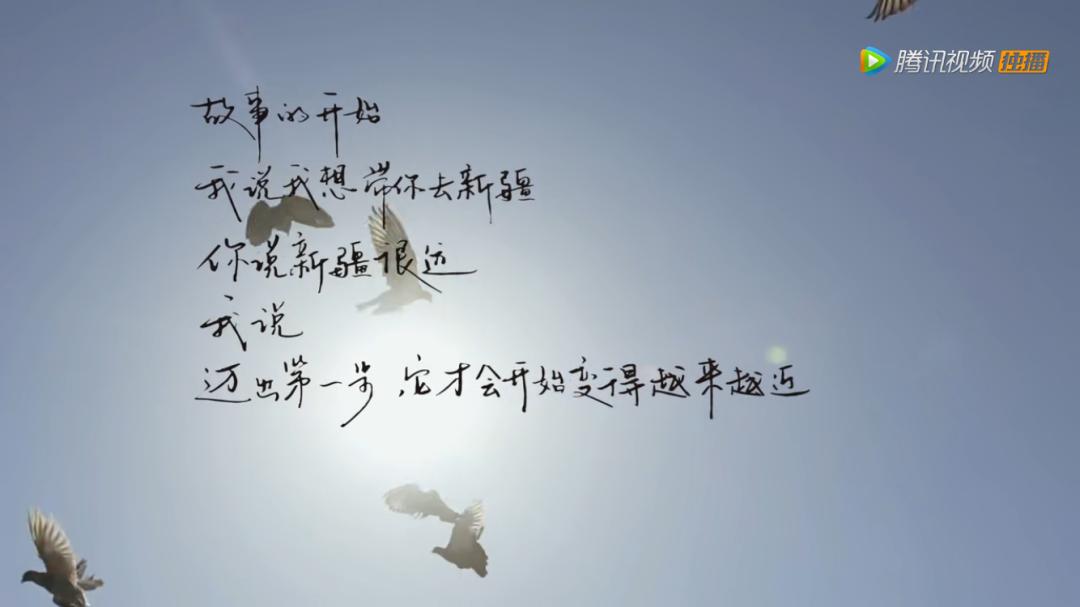 腾讯视频 独播
故事的开始
我说我想带你去新疆
你说新疆很远
我说
迈出第一步，它才会开始变得越来越近